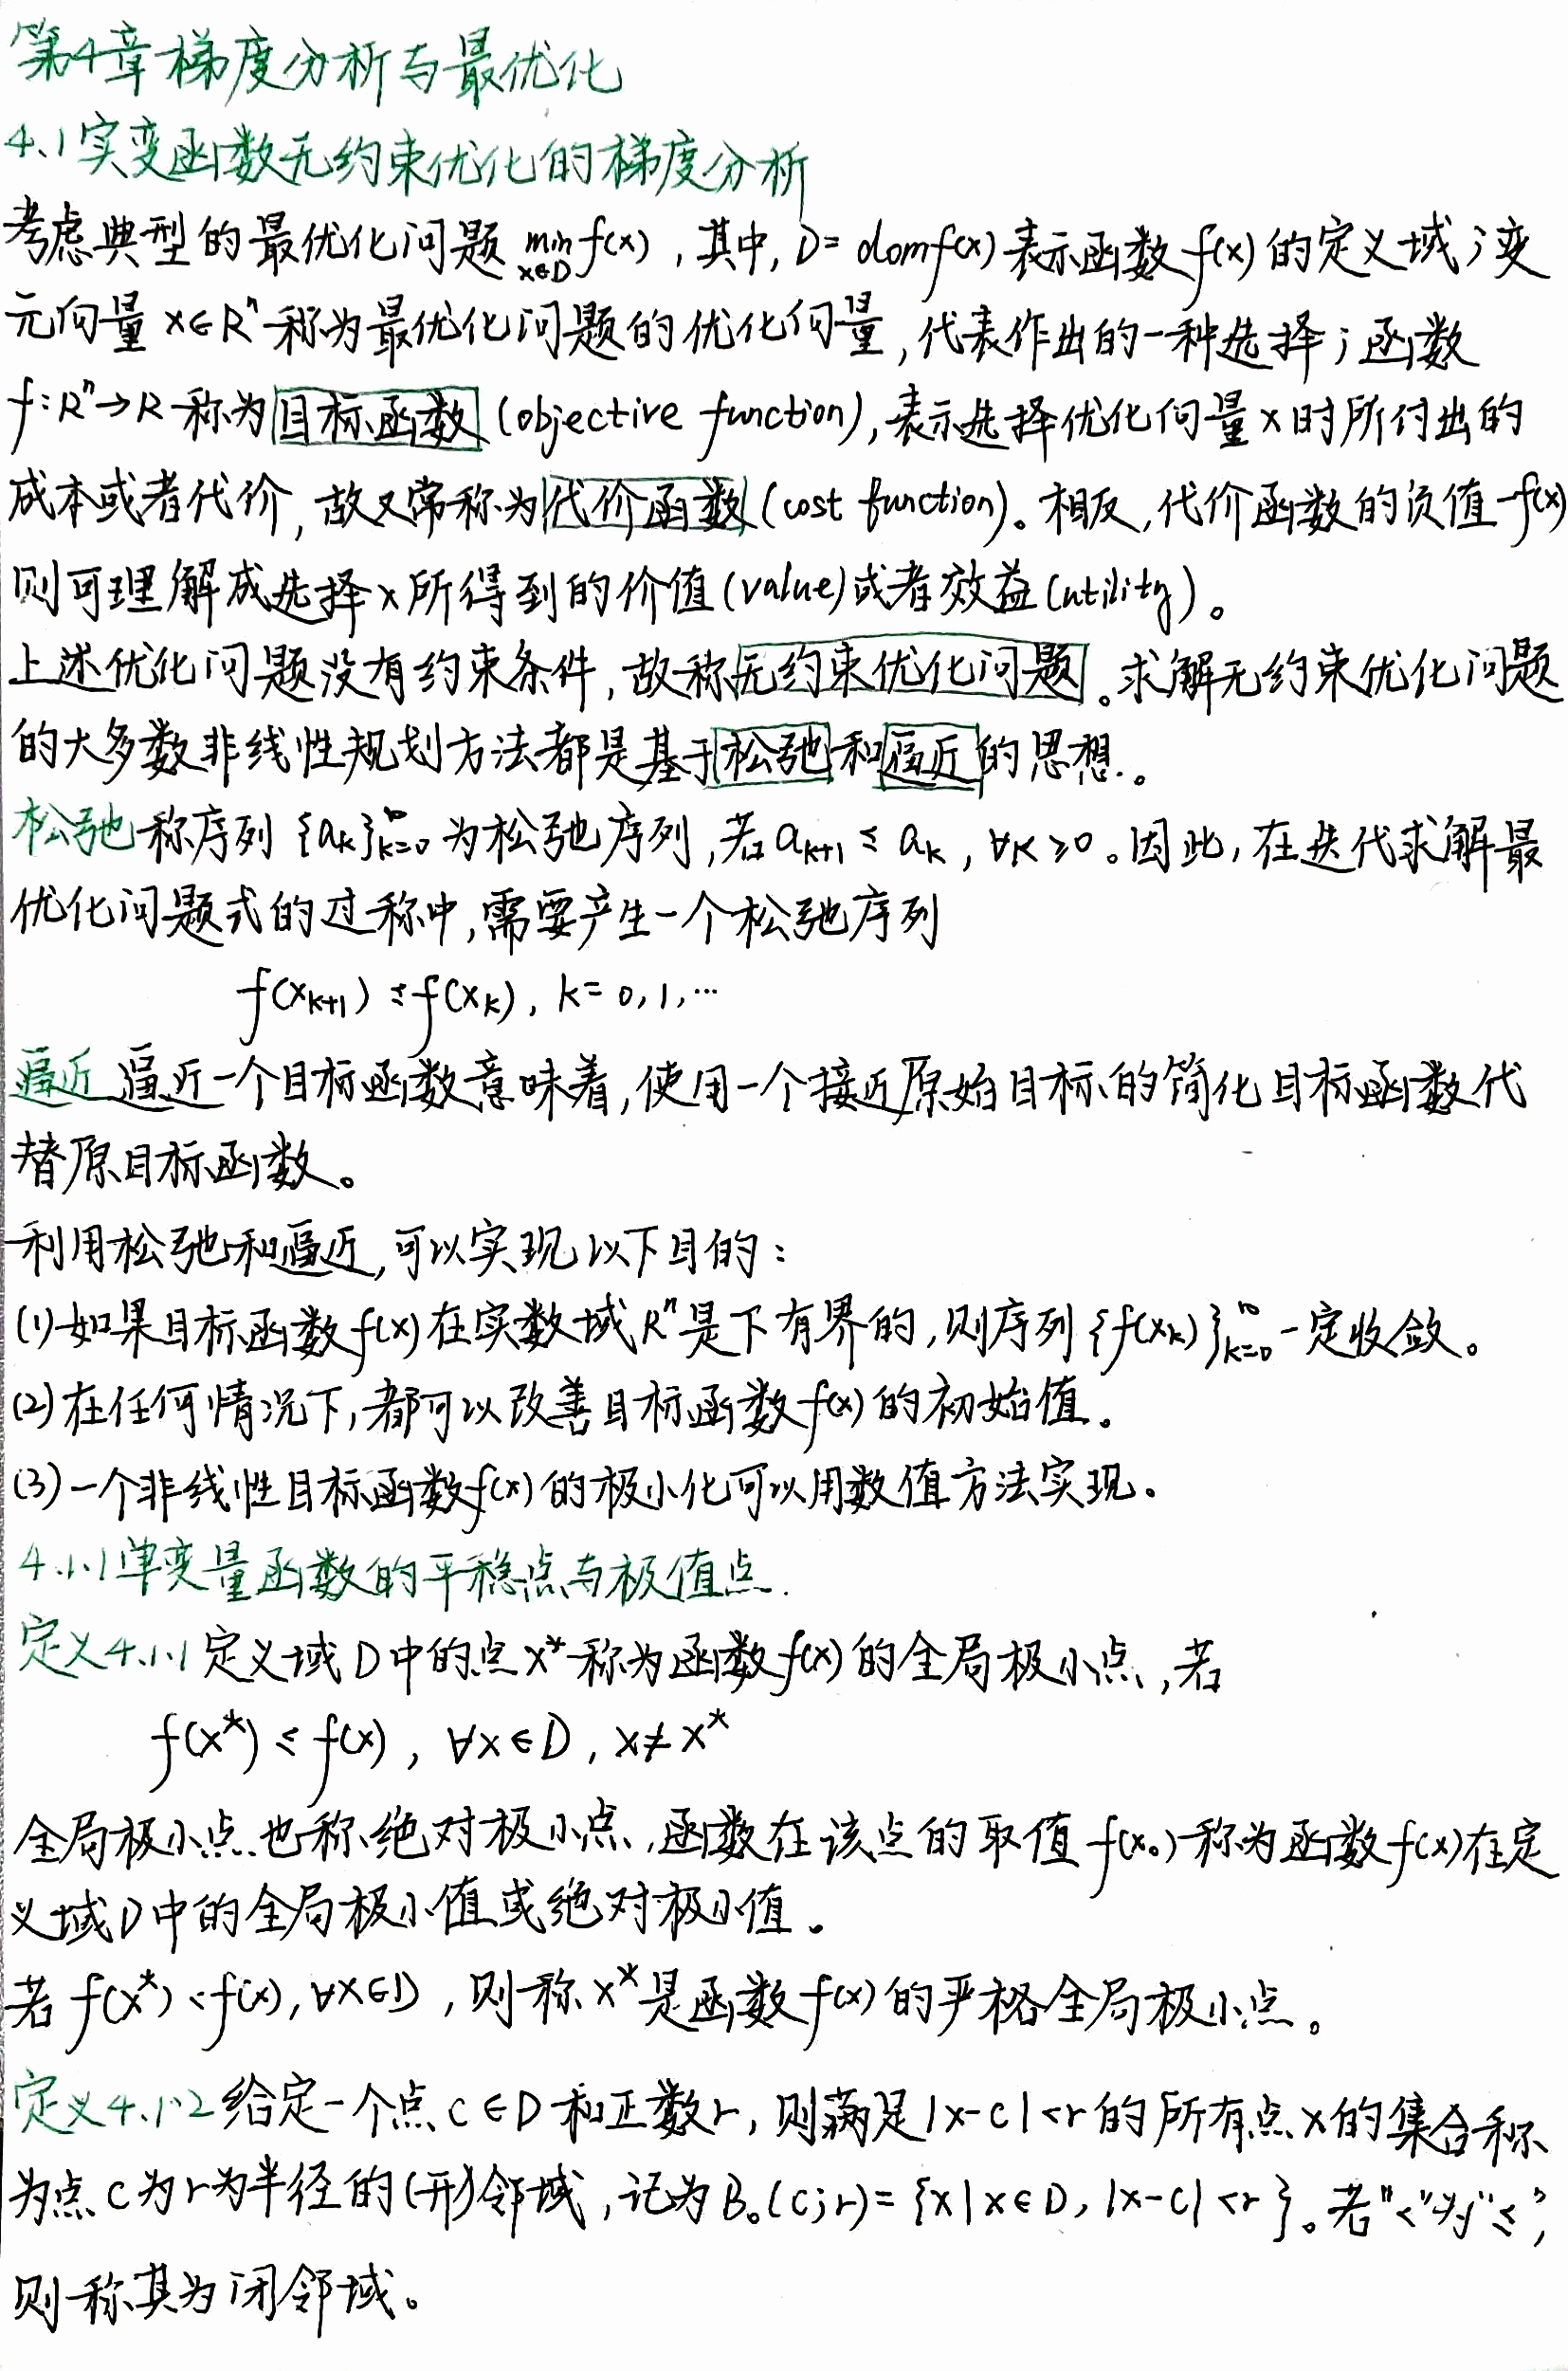 第4章梯度分析与最优化
4.1实变函数无约束优化的梯度分析
考虑典型的最优化问题 min_{x∈D} f(x)，其中，D=domf(x)表示函数f(x)的定义域；变
元向量 x∈Rⁿ 称为最优化问题的优化向量，代表作出的一种选择；函数
f:Rⁿ→R 称为目标函数(objective function)，表示选择优化向量x时所付出的
成本或者代价，故又常称为代价函数(cost function)。相反，代价函数的负值-f(x)
则可理解成选择x所得到的价值(value)或者效益(utility)。
上述优化问题没有约束条件，故称无约束优化问题。求解无约束优化问题
的大多数非线性规划方法都是基于松弛和逼近的思想。
松弛 称序列 {a_k}_{k=0}^∞ 为松弛序列，若a_{k+1} ≤ a_k，∀k≥0。因此，在迭代求解最
优化问题式的过称中，需要产生一个松弛序列
f(x_{k+1}) ≤ f(x_k)，k=0,1,…
逼近 逼近一个目标函数意味着，使用一个接近原始目标的简化目标函数代
替原目标函数。
利用松弛和逼近，可以实现以下目的：
(1)如果目标函数f(x)在实数域Rⁿ是下有界的，则序列{f(x_k)}_{k=0}^∞一定收敛。
(2)在任何情况下，都可以改善目标函数f(x)的初始值。
(3)一个非线性目标函数f(x)的极小化可以用数值方法实现。
4.1.1单变量函数的平稳点与极值点.
定义4.1.1定义域D中的点x*称为函数f(x)的全局极小点，若
f(x*) ≤ f(x)，∀x∈D，x≠x*
全局极小点也称绝对极小点，函数在该点的取值f(x₀)称为函数f(x)在定
义域D中的全局极小值或绝对极小值。
若 f(x*)<f(x)，∀x∈D，则称x*是函数f(x)的严格全局极小点。
定义4.1.2给定一个点c∈D和正数r，则满足|x-c|<r的所有点x的集合称
为点c为r为半径的(开)邻域，记为B₀(c;r)={x|x∈D，|x-c|<r}。若"<"为"≤"，
则称其为闭邻域。